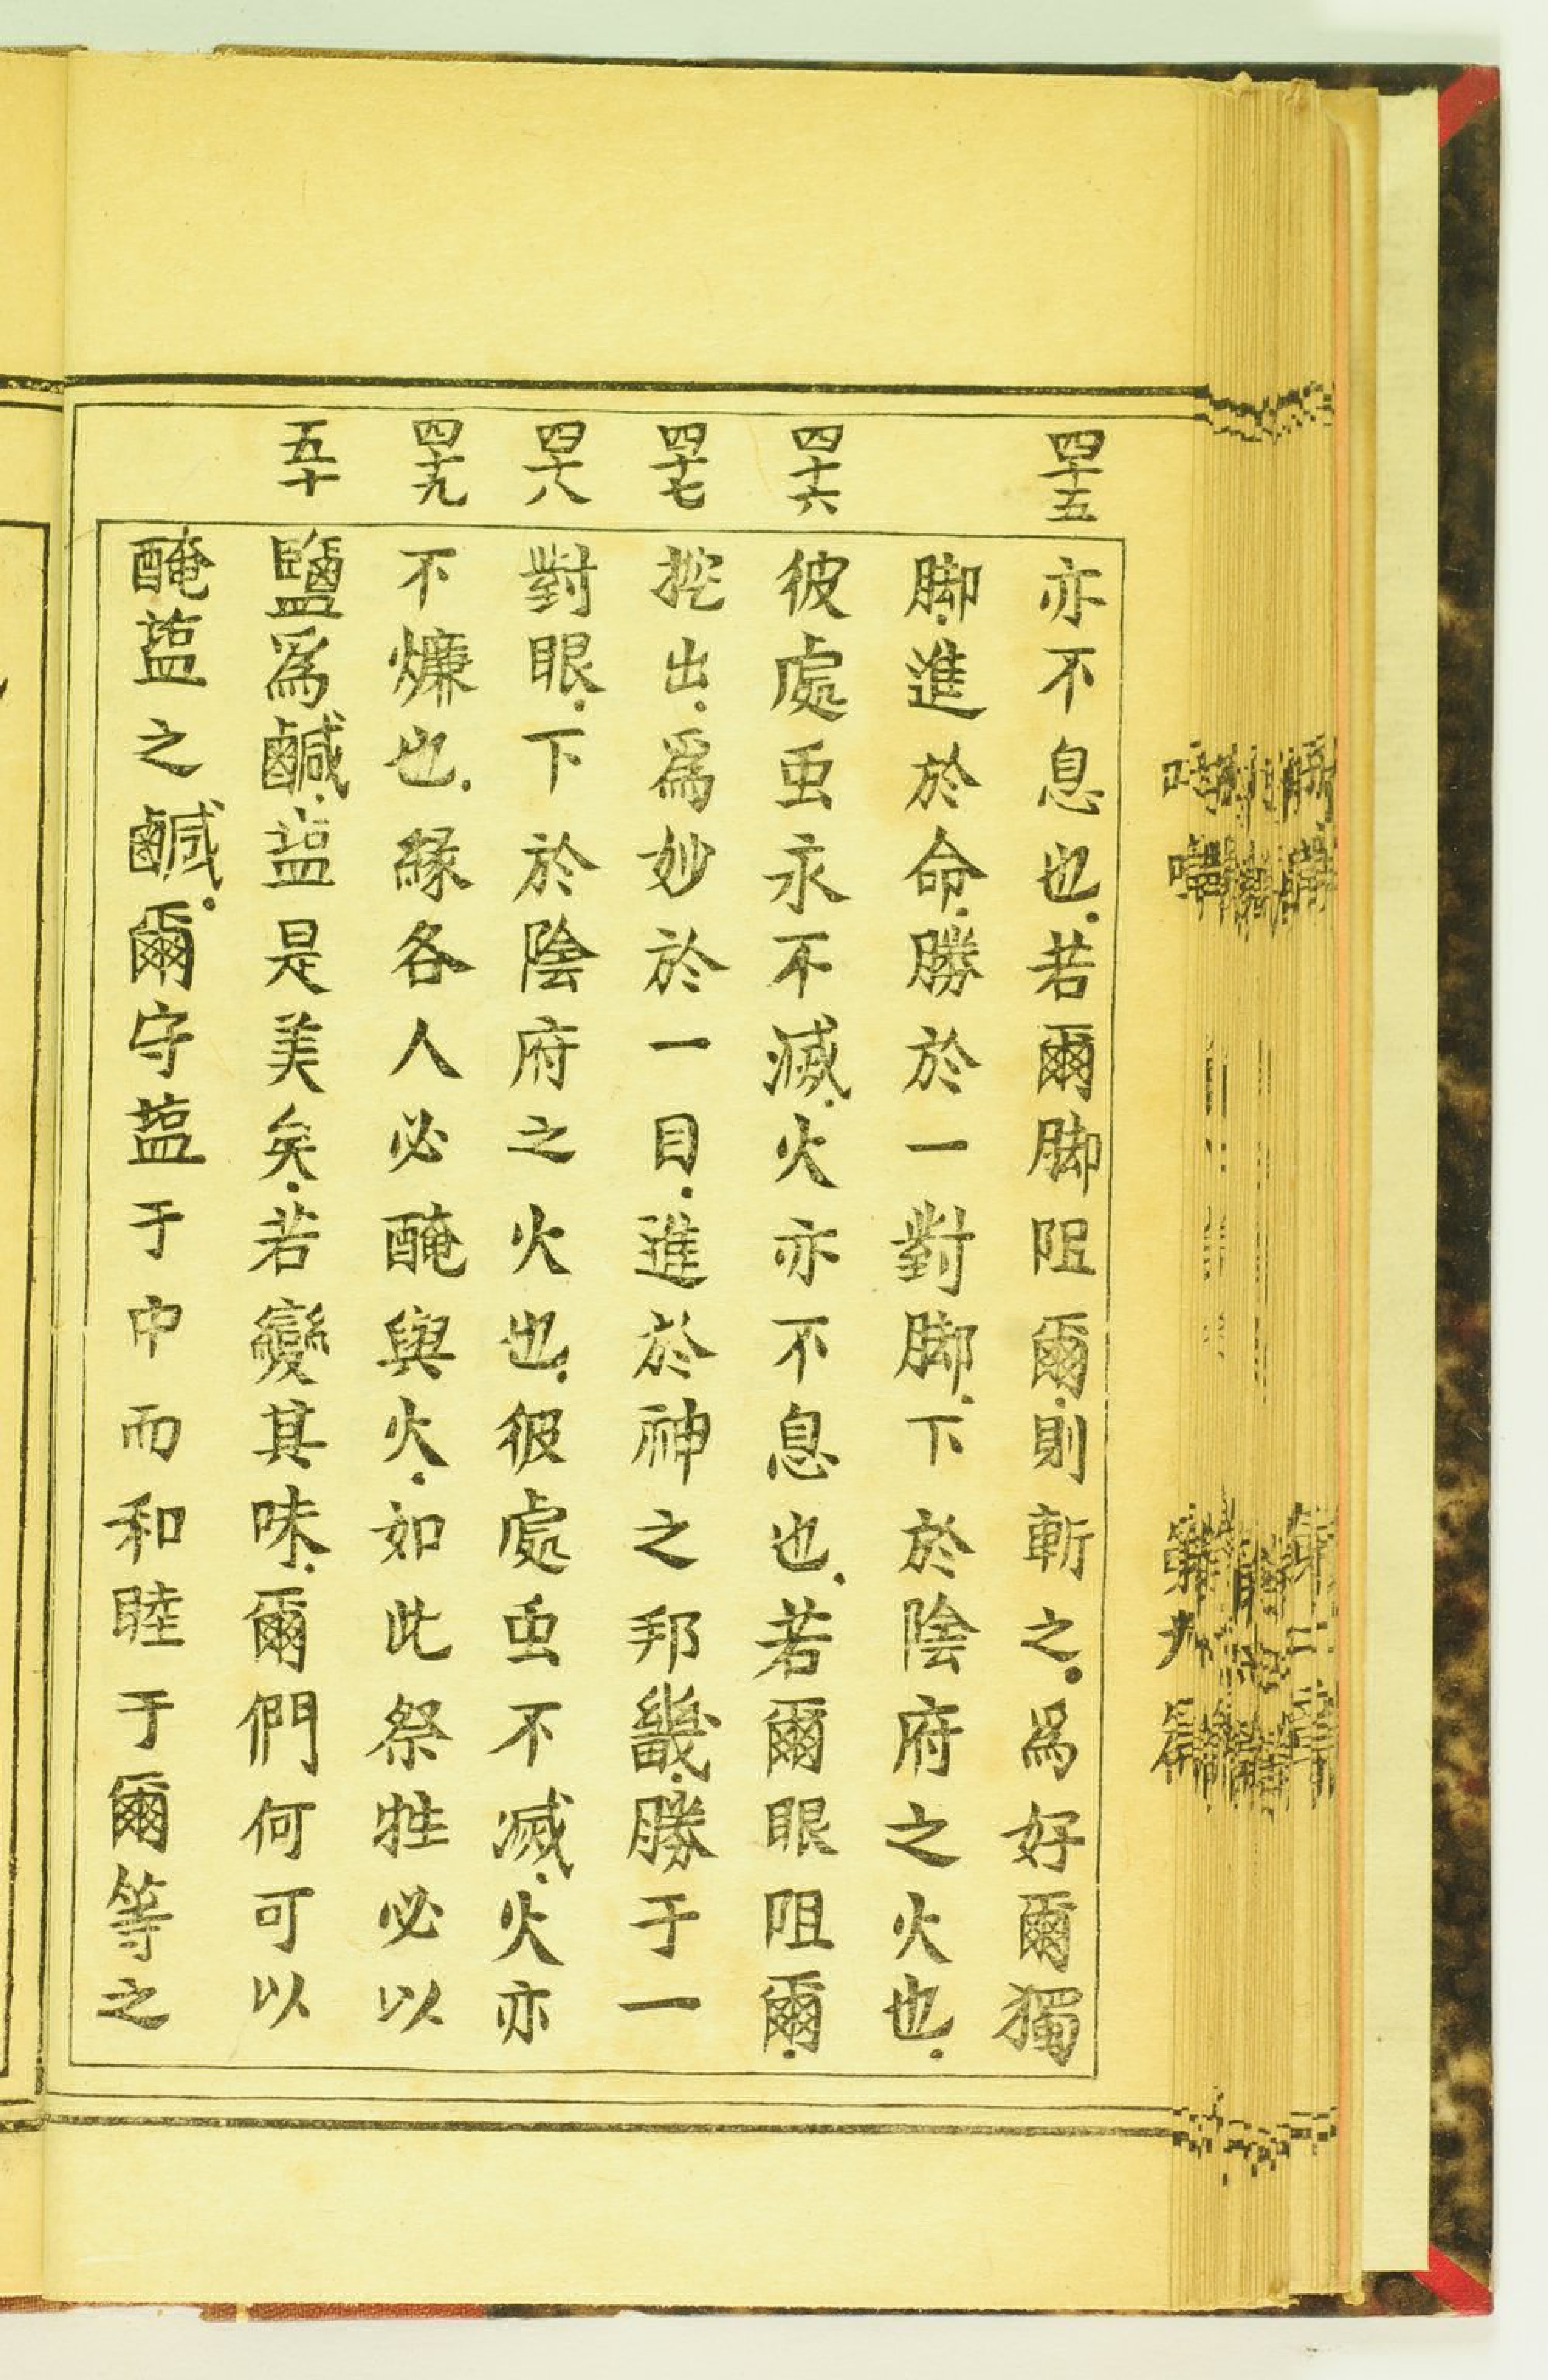 四十五
亦不息也.若爾脚阻爾.則斬之.爲好爾獨
脚.進於命.勝於一對脚.下於陰府之火也.
四十六
彼處虫永不滅.火亦不息也.若爾眼阻爾.
四十七
挖出.爲妙於一目.進於神之邦畿.勝于一
四十八
對眼.下於陰府之火也.彼處虫不滅.火亦
四十九
不熑也.緣各人必醃與火.如此祭牲必以
五十
鹽爲鹹.蓝是美矣.若變其味.爾們何可以
醃蓝之鹹.爾守蓝于中而和睦于爾等之